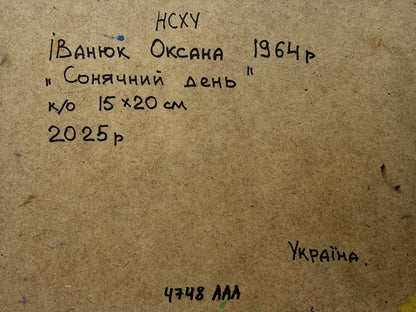 НСХУ
Іванюк Оксана 1964р
„Сонячний день"
к/о 15×20 см
2025р
Україна.
4748 ААА